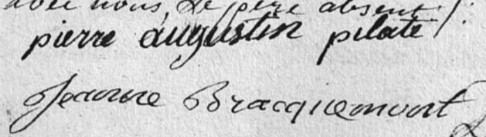 avec nous le père absent /.
pierre augustin pilate
Jeanne Bracquemont